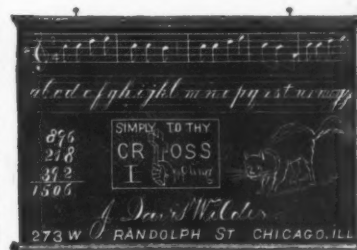 abcdefghijklmnopqrstuvwxyz
896
218
392
1506
SIMPLY TO THY
CR OSS
I
J. Davis Wilder
273 W RANDOLPH ST CHICAGO. ILL